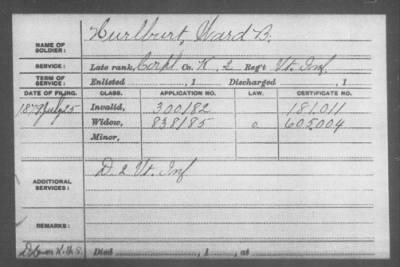 NAME OF SOLDIER: Hurlburt, Ward B.
SERVICE: Late rank, Corpl Co. K, 2 Reg't Vt. Inf.
TERM OF SERVICE: Enlisted , 1 Discharged , 1
DATE OF FILING. CLASS. APPLICATION NO. LAW. CERTIFICATE NO.
1879 July 25 Invalid, 300182 181.011
Widow, 838185 605004
Minor,
ADDITIONAL SERVICES: D. 2 Vt. Inf
REMARKS:
Died , 1 , at